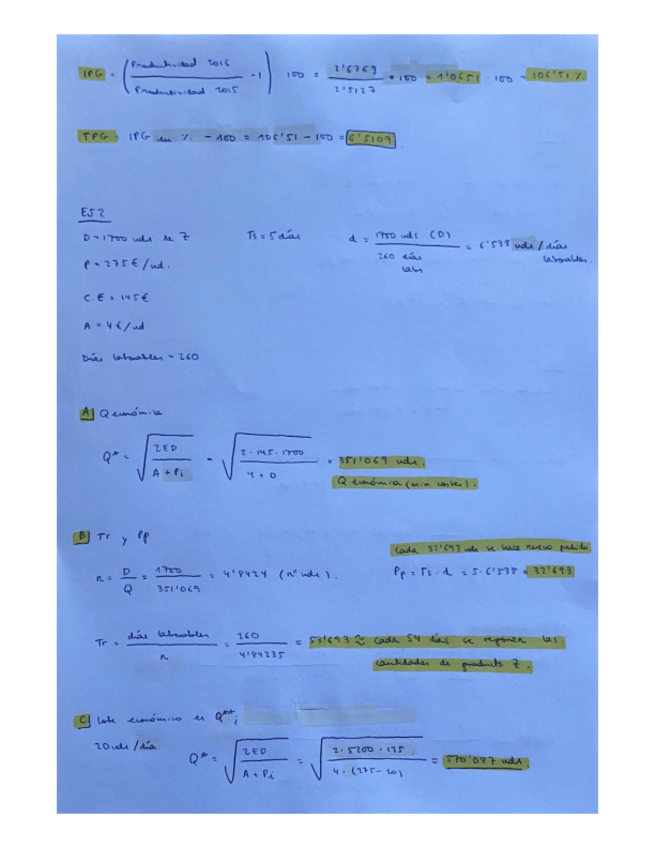 IPG = ( Productividad 2016 / Productividad 2015 - 1 ) · 100 = 2'6763 / 2'5127 · 100 = 1'0651 · 100 = 106'51 %
TPG = IPG en % - 100 = 106'51 - 100 = 6'5109.
EJ 2
D = 1700 uds de Z   Ts = 5 días   d = 1700 uds (D) / 260 días labs = 6'538 uds / días laborables.
P = 275 € / ud.
C.E = 145 €
A = 4 € / ud
Días laborables = 260
A) Q económica
Q* = √( 2ED / A + Pi ) = √( 2 · 145 · 1700 / 4 + 0 ) = 351'069 uds.
Q económica (min costes).
B) Tr y Pp
Cada 32'693 uds se hace nuevo pedido
n = D / Q = 1700 / 351'069 = 4'8424 (nº uds).   Pp = Ts · d = 5 · 6'538 = 32'693
Tr = días laborables / n = 260 / 4'84235 = 53'693 ≈ cada 54 días se reponen las
cantidades de producto Z.
C) Lote económico es Q**;
20 uds / día   Q* = √( 2ED / A + Pi ) = √( 2 · 5200 · 125 / 4 · (275 - 20) ) = 570'087 uds.